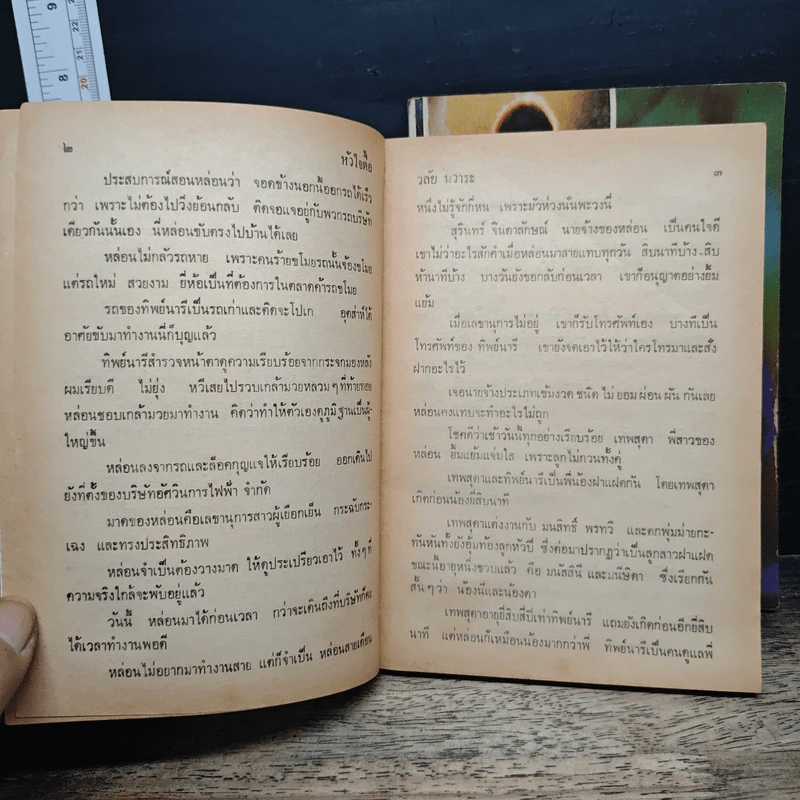 ๒
หัวใจดื้อ
ประสบการณ์สอนหล่อนว่า จอดข้างนอกนี้ออกรถได้เร็ว
กว่า เพราะไม่ต้องไปวิ่งย้อนกลับ ติดจอแจอยู่กับพวกรถบริษัท
เดียวกันนั้นเอง นี่หล่อนขับตรงไปบ้านได้เลย
หล่อนไม่กลัวรถหาย เพราะคนร้ายขโมยรถนั้นจ้องขโมย
แต่รถใหม่ สวยงาม ยี่ห้อเป็นที่ต้องการในตลาดค้ารถขโมย
รถของทิพย์นารีเป็นรถเก่าและติดจะโปเก อุตส่าห์ได้
อาศัยขับมาทำงานนี่ก็บุญแล้ว
ทิพย์นารีสำรวจหน้าตาดูความเรียบร้อยจากกระจกมองหลัง
ผมเรียบดี ไม่ยุ่ง หวีเสยไปรวบเกล้ามวยหลวมๆที่ท้ายทอย
หล่อนชอบเกล้ามวยมาทำงาน คิดว่าทำให้ตัวเองดูภูมิฐานเป็นผู้
ใหญ่ขึ้น
หล่อนลงจากรถและล็อคกุญแจให้เรียบร้อย ออกเดินไป
ยังที่ตั้งของบริษัทอัศวินการไฟฟ้า จำกัด
มาดของหล่อนคือเลขานุการสาวผู้เยือกเย็น กระฉับกระ-
เฉง และทรงประสิทธิภาพ
หล่อนจำเป็นต้องวางมาด ให้ดูประเปรียวเอาไว้ ทั้งๆที่
ความจริงใกล้จะพับอยู่แล้ว
วันนี้ หล่อนมาได้ก่อนเวลา กว่าจะเดินถึงที่บริษัทก็คง
ได้เวลาทำงานพอดี
หล่อนไม่อยากมาทำงานสาย แต่ก็จำเป็น หล่อนสายเดือน
วลัย นวาระ
๓
หนึ่งไม่รู้จักกี่หน เพราะมัวห่วงนั่นพะวงนี่
สุรินทร์ จินดาลักษณ์ นายจ้างของหล่อน เป็นคนใจดี
เขาไม่ว่าอะไรสักคำเมื่อหล่อนมาสายแทบทุกวัน สิบนาทีบ้าง สิบ
ห้านาทีบ้าง บางวันยังขอกลับก่อนเวลา เขาก็อนุญาตอย่างยิ้ม
แย้ม
เมื่อเลขานุการไม่อยู่ เขาก็รับโทรศัพท์เอง บางทีเป็น
โทรศัพท์ของ ทิพย์นารี เขายังจดเอาไว้ให้ว่าใครโทรมาและสั่ง
ฝากอะไรไว้
เจอนายจ้างประเภทเข้มงวด ชนิด ไม่ ยอม ผ่อน ผัน กันเลย
หล่อนคงแทบจะทำอะไรไม่ถูก
โชคดีว่าเช้าวันนี้ทุกอย่างเรียบร้อย เทพสุดา พี่สาวของ
หล่อน ยิ้มแย้มแจ่มใส เพราะลูกไม่กวนทั้งคู่
เทพสุดาและทิพย์นารีเป็นพี่น้องฝาแฝดกัน โดยเทพสุดา
เกิดก่อนน้องยี่สิบนาที
เทพสุดาแต่งงานกับ มนสิทธิ์ พรทวี และตกพุ่มม่ายกะ-
ทันหันทั้งยังอุ้มท้องลูกหัวปี ซึ่งต่อมาปรากฏว่าเป็นลูกสาวฝาแฝด
ขณะนี้อายุหนึ่งขวบแล้ว คือ มนัสสินี และมนัษิดา ซึ่งเรียกกัน
สั้นๆว่า น้องนีและน้องดา
เทพสุดาอายุยี่สิบสี่ปีเท่าทิพย์นารี แถมยังเกิดก่อนอีกยี่สิบ
นาที แต่หล่อนก็เหมือนน้องมากกว่าพี่ ทิพย์นารีเป็นคนดูแลพี่
9
8
22
21
20